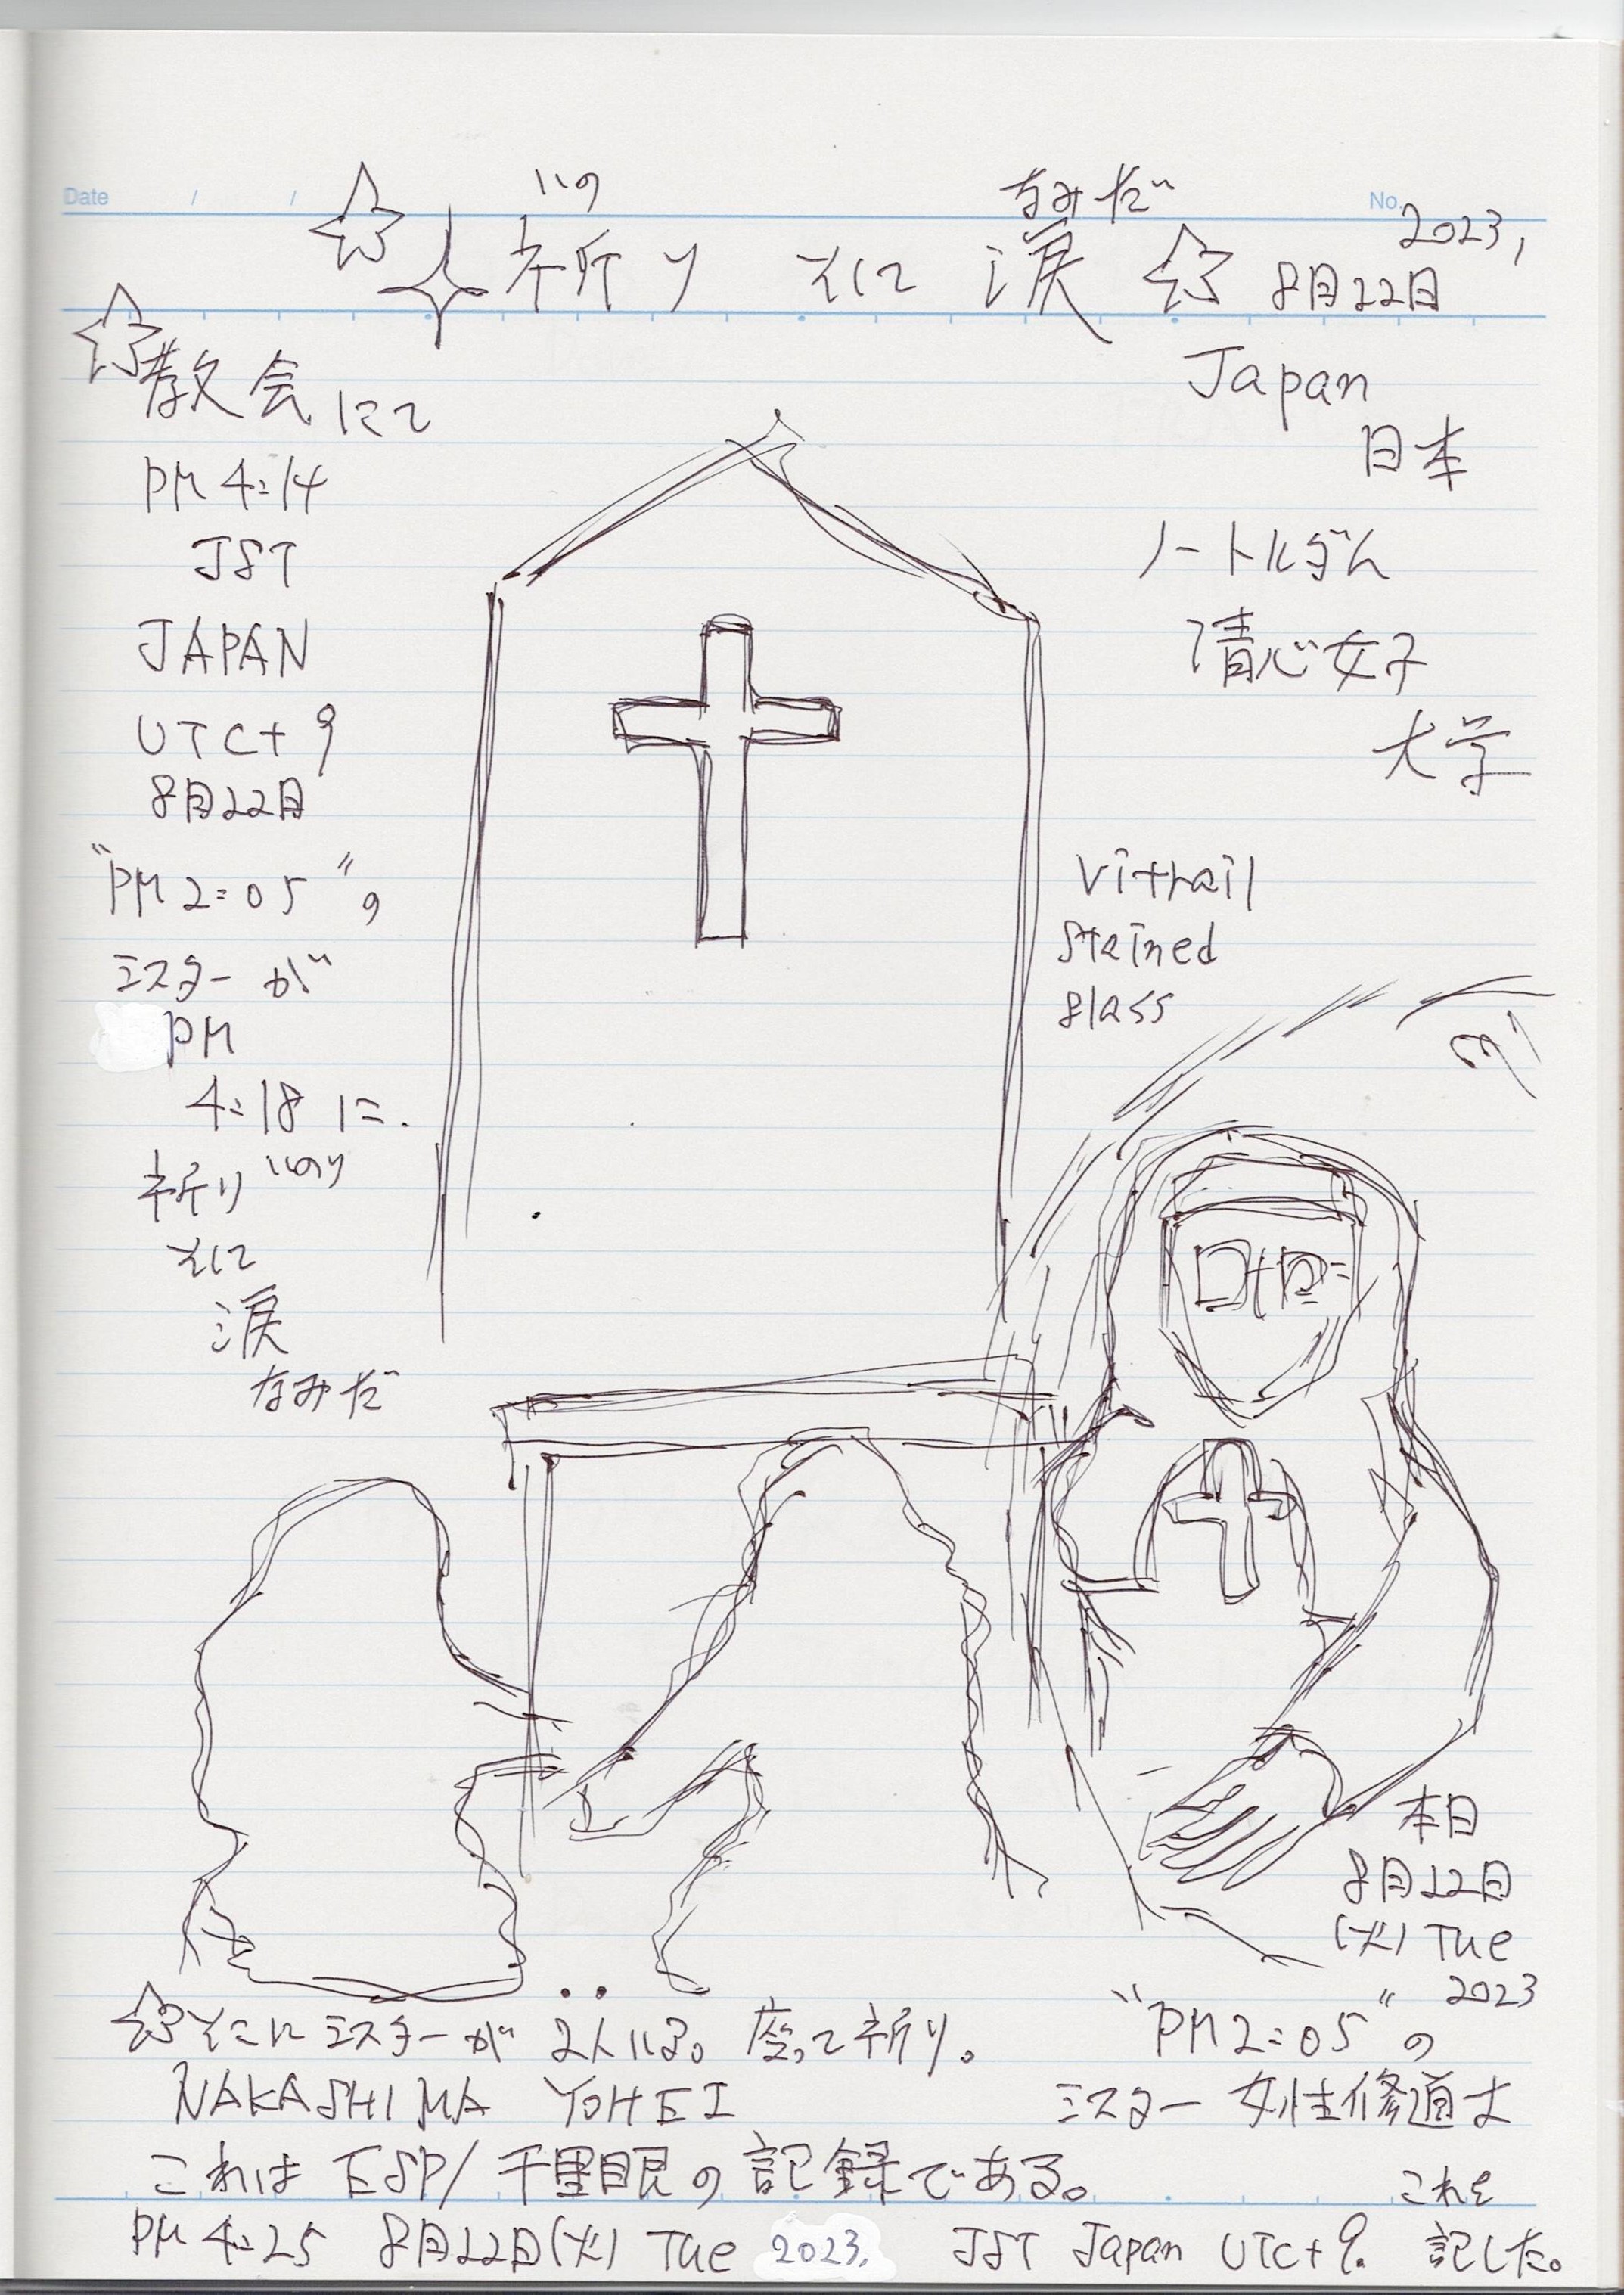 Date / /
No.
いの なみだ
祈り そして 涙
2023,
8月22日
教会にて
PM 4:14
JST
JAPAN
UTC+9
8月22日
"PM 2:05"の
ミスターが
PM
4:18 に.
祈り いのり
そして
涙
なみだ
Japan
日本
ノートルダム
清心女子
大学
Vitrail
Stained
glass
本日
8月22日
(火) Tue
2023
"PM 2:05"の
ミスター 女性修道士
そこにミスターが 2人いる。座って祈り。
NAKASHIMA YOHEI
これは ESP/千里眼の記録である。
これを
PM 4:25 8月22日(火) Tue 2023. JST Japan UTC+9. 記した。